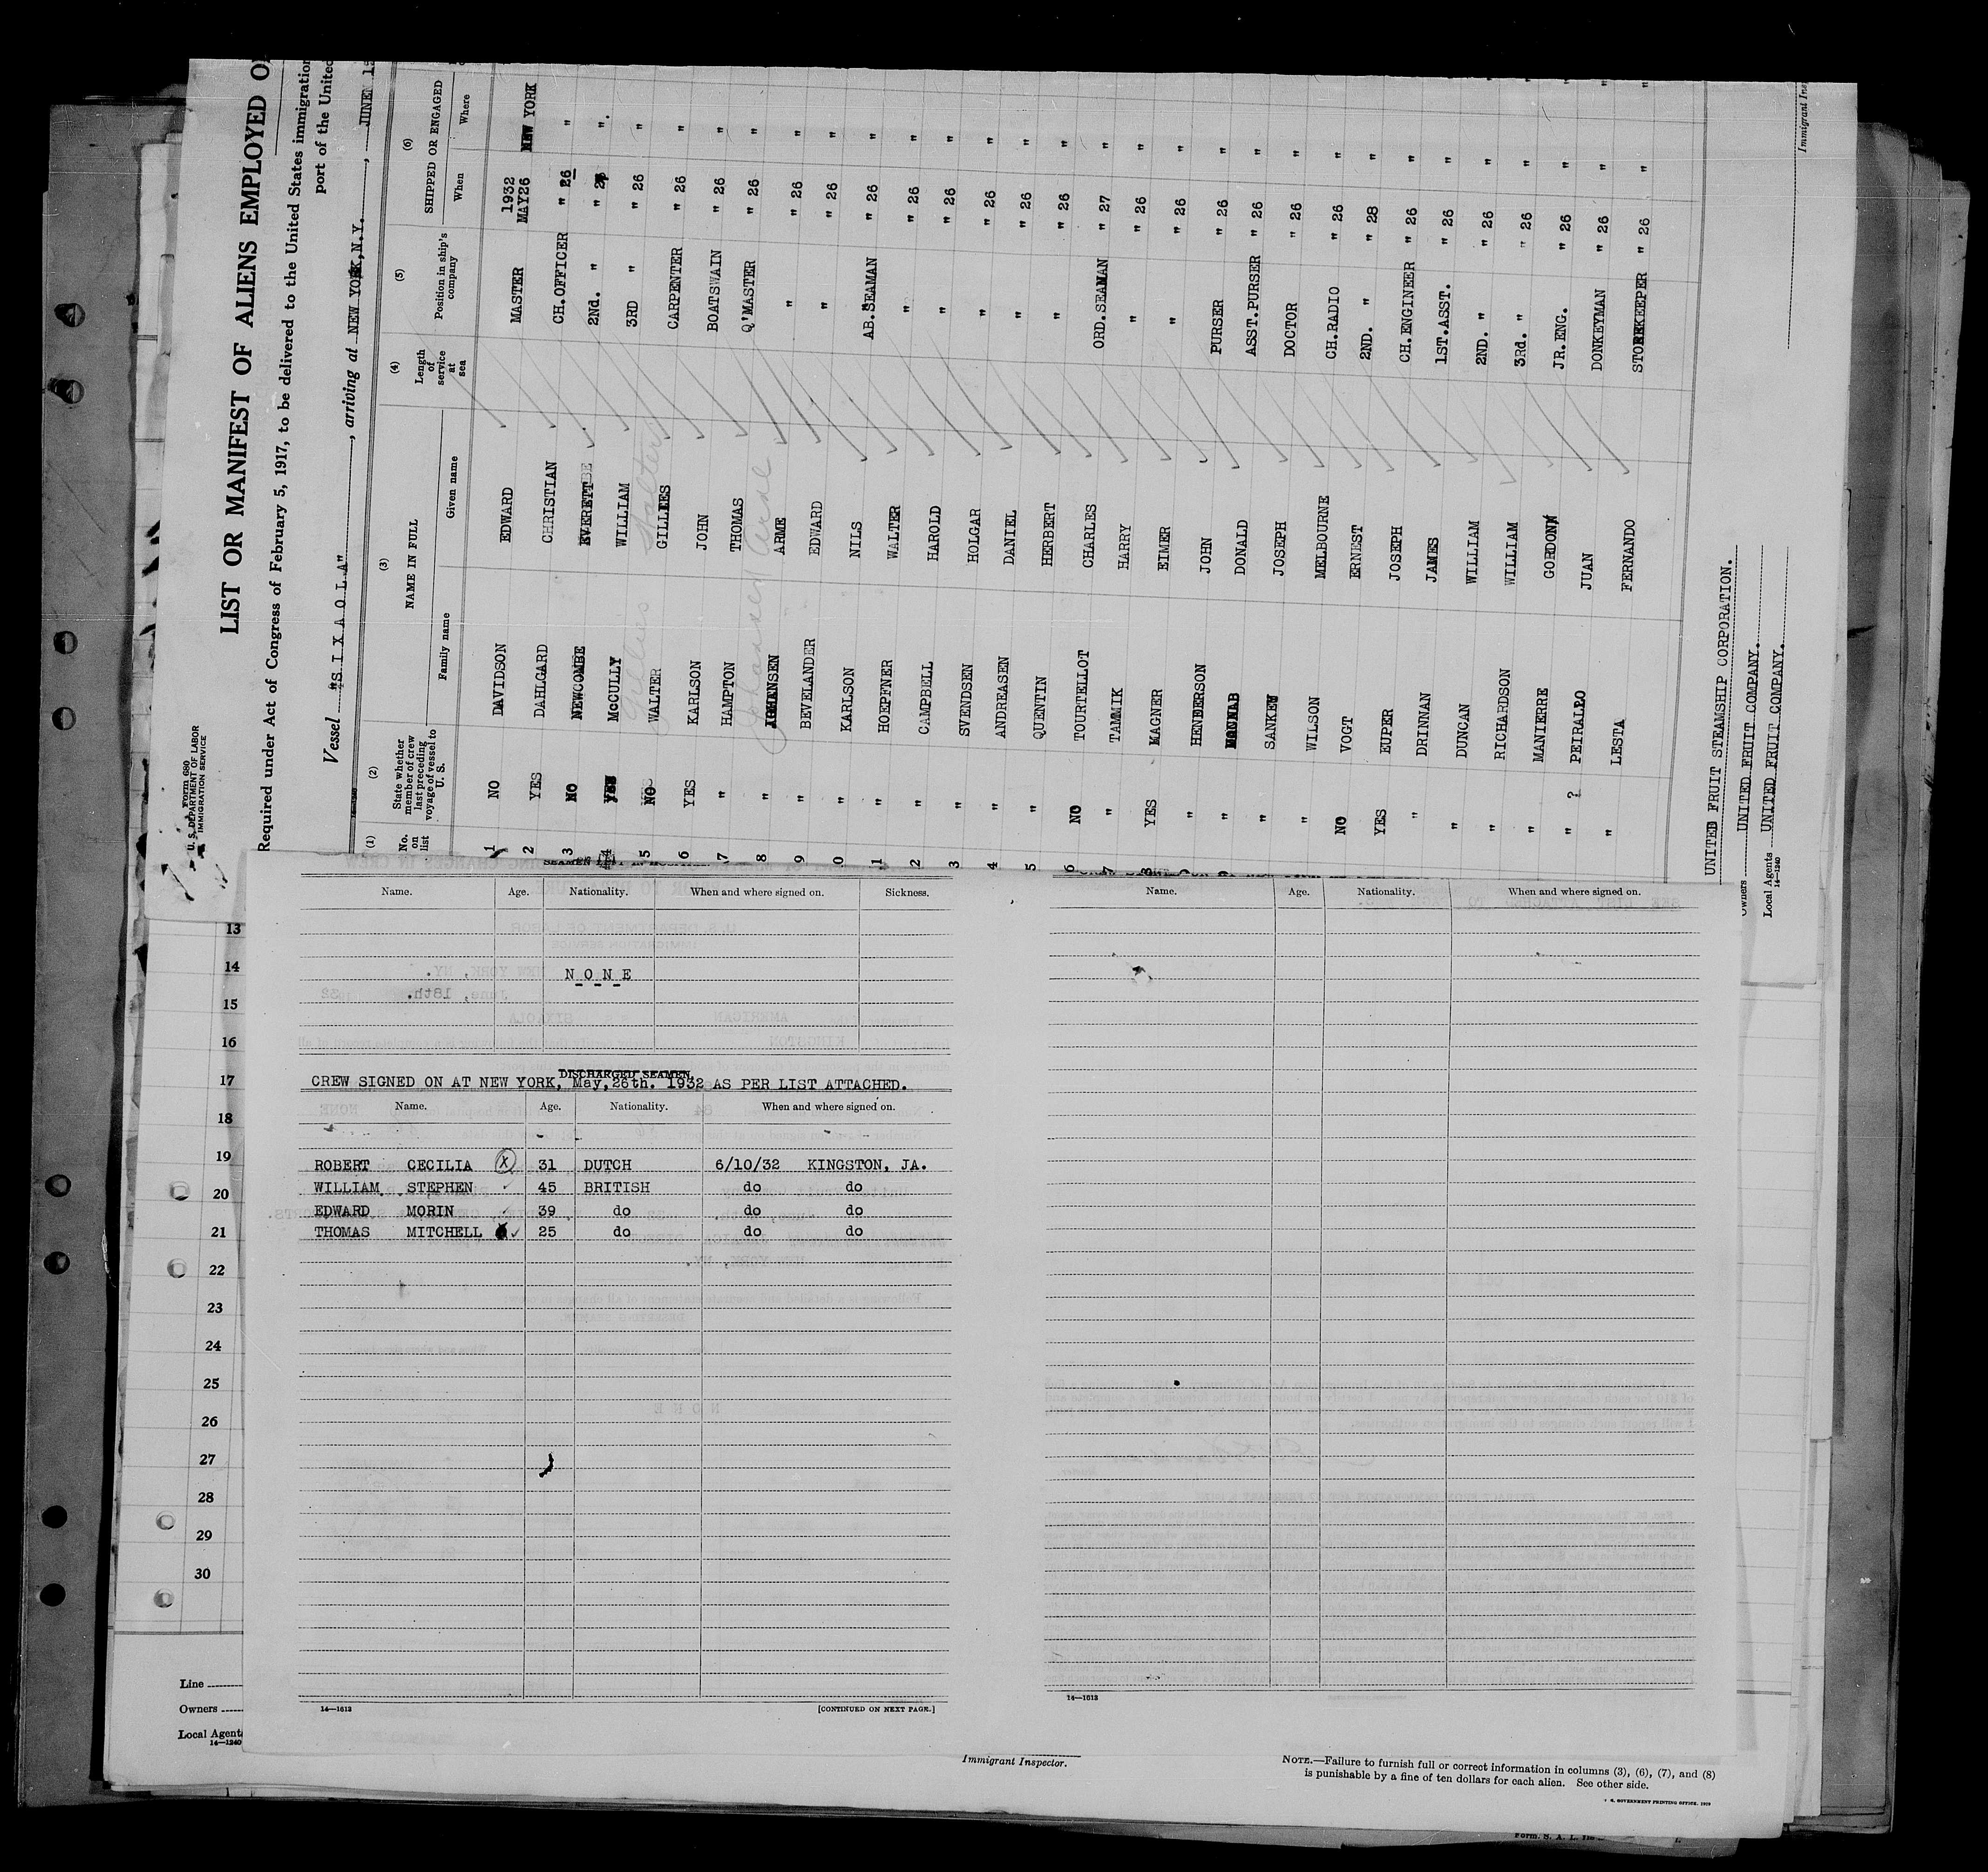 Form 680
U. S. DEPARTMENT OF LABOR
IMMIGRATION SERVICE
LIST OR MANIFEST OF ALIENS EMPLOYED O
Required under Act of Congress of February 5, 1917, to be delivered to the United States immigration
port of the United
Vessel "S I X A O L A", arriving at NEW YORK, N.Y.,
(1) (2) (3) (4) (5) (6)
No. on list State whether member of crew last preceding voyage of vessel to U. S. NAME IN FULL Length of service at sea Position in ship's company SHIPPED OR ENGAGED
Family name Given name When Where
1932
1 NO DAVIDSON EDWARD MASTER MAY26 NEW YORK
2 YES DAHLGARD CHRISTIAN CH.OFFICER " 26 "
3 NO NEWCOMBE EVERETT 2Nd. " " "
4 McCULLY WILLIAM 3RD " " 26 "
5 NO WALTER GILLIES CARPENTER " 26 "
6 YES KARLSON JOHN BOATSWAIN " 26 "
7 " HAMPTON THOMAS Q'MASTER " 26 "
8 " ARME " " 26 "
9 " BEVELANDER EDWARD " " 26 "
0 " KARLSON NILS AB.SEAMAN " 26 "
1 " HOEPFNER WALTER " " 26 "
2 " CAMPBELL HAROLD " " 26 "
3 " SVENDSEN HOLGAR " " 26 "
4 " ANDREASEN DANIEL " " 26 "
5 " QUENTIN HERBERT " " 26 "
6 NO TOURTELLOT CHARLES ORD.SEAMAN " 27 "
7 " TAMMIK HARRY " " 26 "
8 YES MAGNER EIMER " " 26 "
" HENDERSON JOHN PURSER " 26 "
" DONALD ASST.PURSER " 26 "
" JOSEPH DOCTOR " 26 "
" WILSON MELBOURNE CH.RADIO " 26 "
NO VOGT ERNEST 2ND. " " 28 "
YES EUPER JOSEPH CH.ENGINEER " 26 "
" DRINNAN JAMES 1ST.ASST. " 26 "
" DUNCAN WILLIAM 2ND. " " 26 "
" RICHARDSON WILLIAM 3Rd. " " 26 "
" MANIERRE GORDON JR.ENG. " 26 "
" ? PEIRALLO JUAN DONKEYMAN " 26 "
" LESTA FERNANDO STOREKEEPER " 26 "
UNITED FRUIT STEAMSHIP CORPORATION.
Owners UNITED FRUIT COMPANY.
Local Agents UNITED FRUIT COMPANY.
14—1240
Name. Age. Nationality. When and where signed on. Sickness.
N O N E
DISCHARGED SEAMEN.
CREW SIGNED ON AT NEW YORK, May, 26th. 1932 AS PER LIST ATTACHED.
Name. Age. Nationality. When and where signed on.
ROBERT CECILIA X 31 DUTCH 6/10/32 KINGSTON, JA.
WILLIAM STEPHEN 45 BRITISH do do
EDWARD MORIN 39 do do do
THOMAS MITCHELL 25 do do do
14—1613
[CONTINUED ON NEXT PAGE.]
Name. Age. Nationality. When and where signed on.
14—1613
13
14
15
16
17
18
19
20
21
22
23
24
25
26
27
28
29
30
Line
Owners
Local Agents
14—1240
Immigrant Inspector.
NOTE.—Failure to furnish full or correct information in columns (3), (6), (7), and (8)
is punishable by a fine of ten dollars for each alien. See other side.